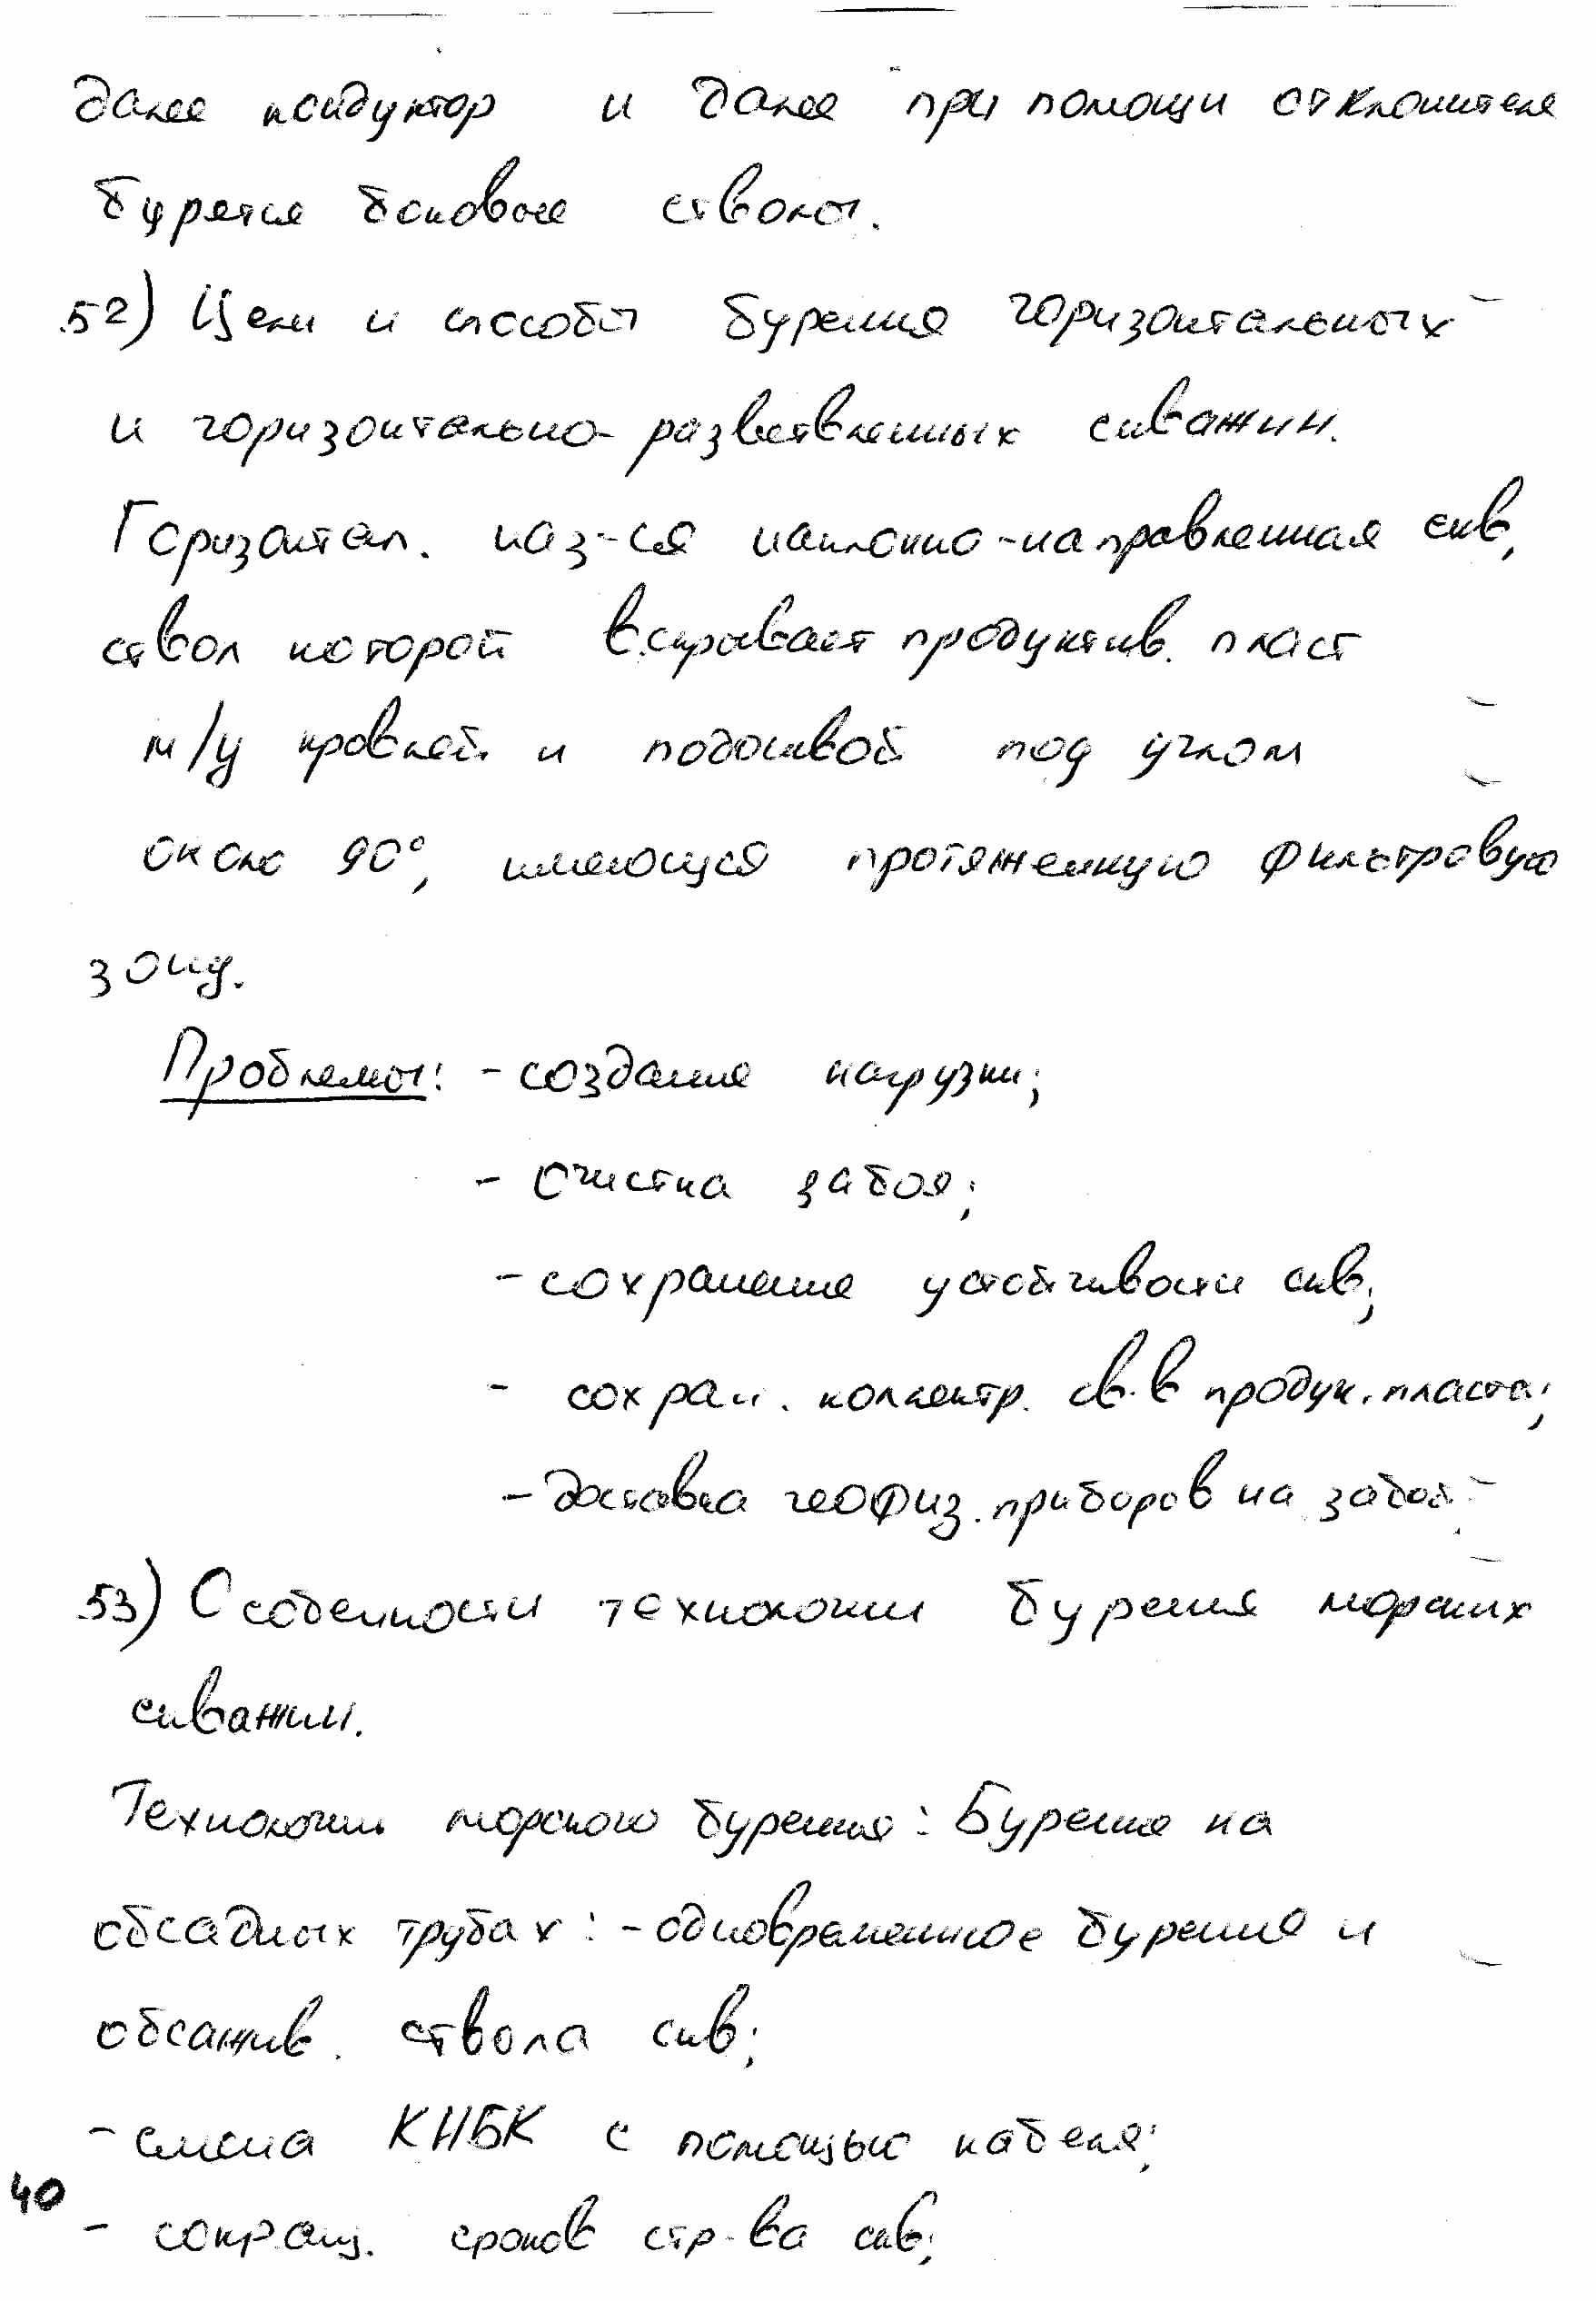 далее кондуктор и далее при помощи отклонителя
бурятся боковые стволы.
52) Цели и способы бурения горизонтальных
и горизонтально-разветвленных скважин.
Горизонтал. наз-ся наклонно-направленная скв,
ствол которой вскрывает продуктив. пласт
м/у кровлей и подошвой под углом
около 90°, имеющая протяженную фильтровую
зону.
Проблемы: - создание нагрузки;
- очистка забоя;
- сохранение устойчивости скв;
- сохран. коллектр. св-в продук. пласта;
- доставка геофиз. приборов на забой;
53) Особенности технологии бурения морских
скважин.
Технологии морского бурения: Бурение на
обсадных трубах: - одновременное бурение и
обсажив. ствола скв;
- смена КНБК с помощью кабеля;
40
- сокращ. сроков стр-ва скв;